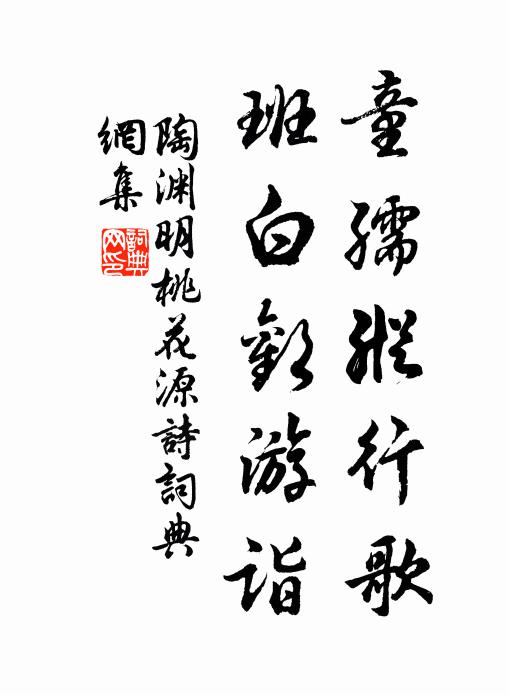 童孺縱行歌
班白歡游詣
陶渊明桃花源詩詞典
網集
詞典
网印